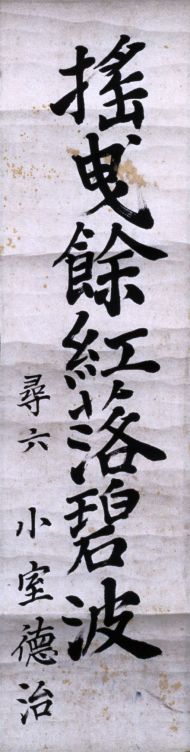 搖曳餘紅落碧波
尋六 小室德治